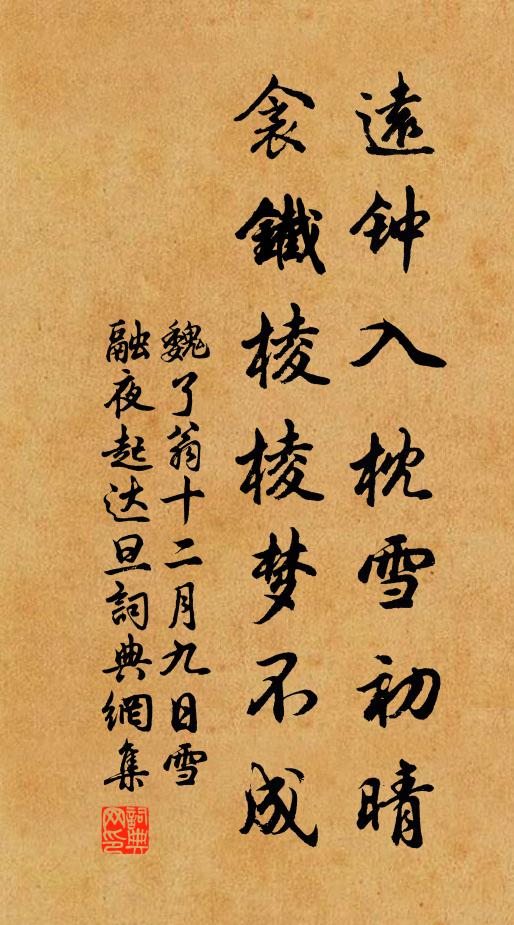 遠钟入枕雪初晴
衾鐵棱棱梦不成
魏了翁十二月九日雪
融夜起达旦詞典網集
詞典网印